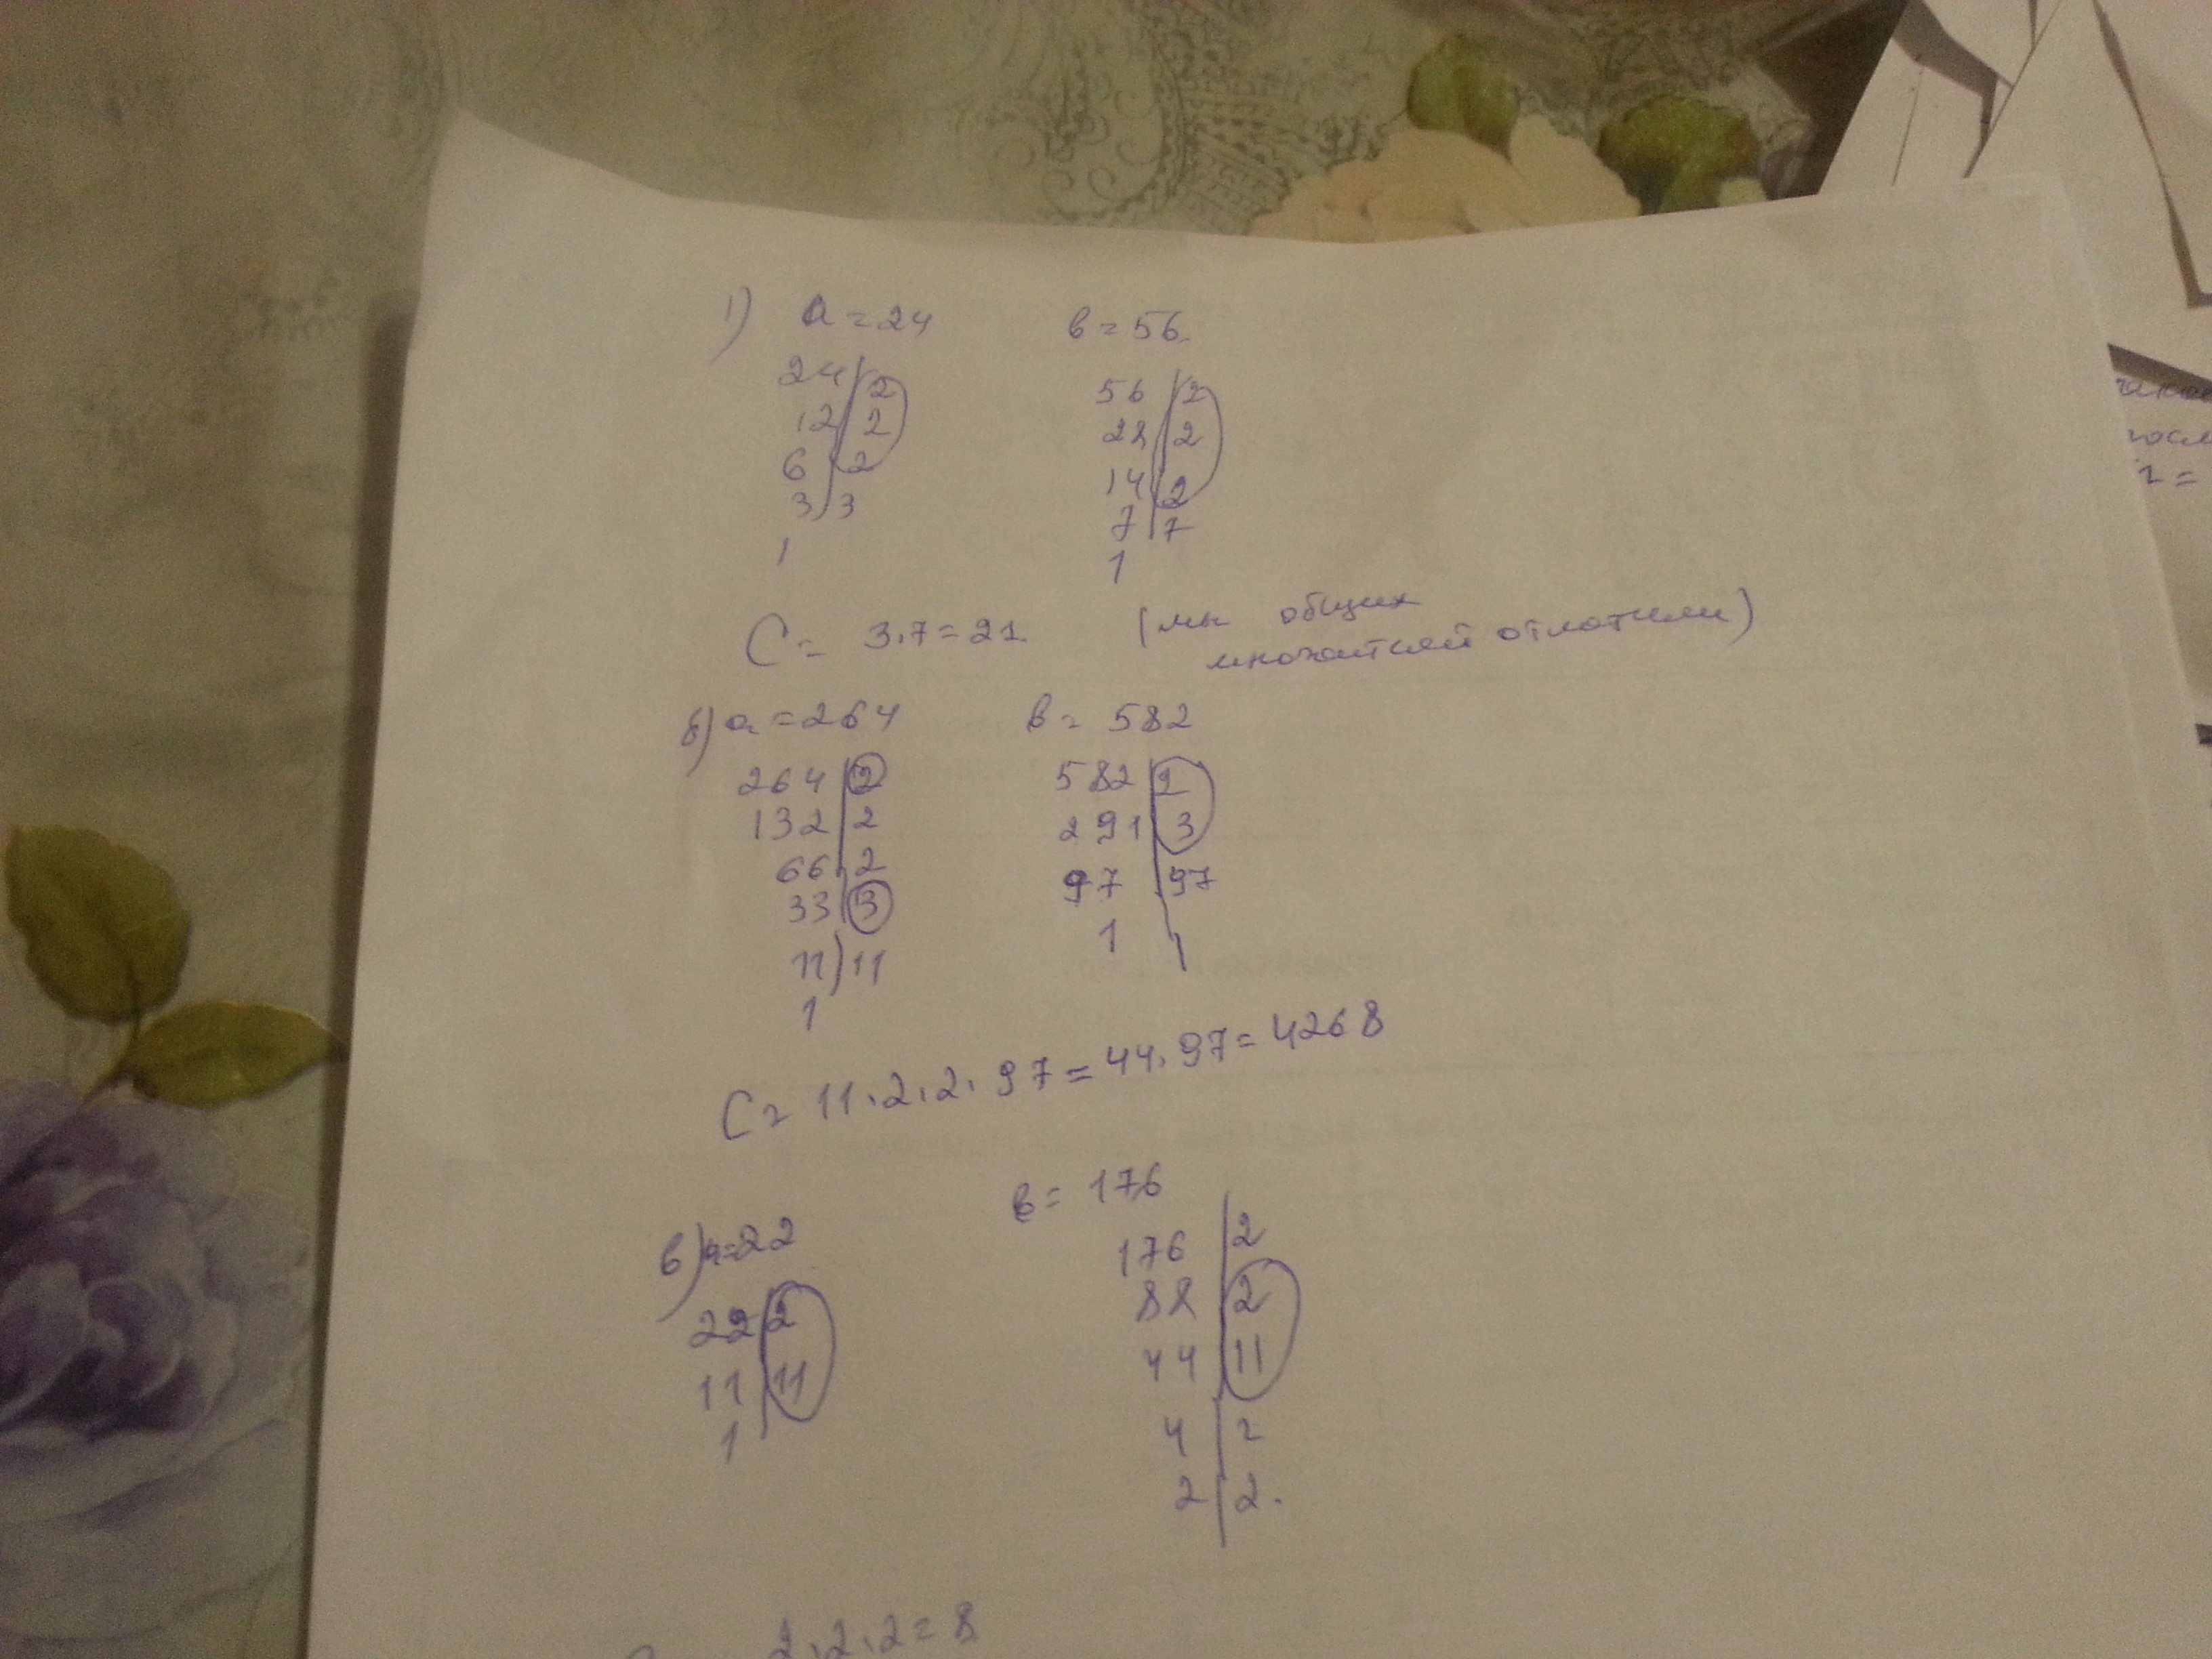 1) a = 24 в = 56
24 | 2 56 | 2
12 | 2 28 | 2
6 | 2 14 | 2
3 | 3 7 | 7
1 1
C = 3.7 = 21 (мы общих
множителей
б) a = 264 в = 582
264 | 2 582 | 2
132 | 2 291 | 3
66 | 2 97 | 97
33 | 3 1
11 | 11
1
C = 11.2.2.97 = 44.97 = 4268
в) a = 22 в = 176
22 | 2 176 | 2
11 | 11 88 | 2
1 44 | 11
4 | 2
2 | 2.
2.2.2 = 8